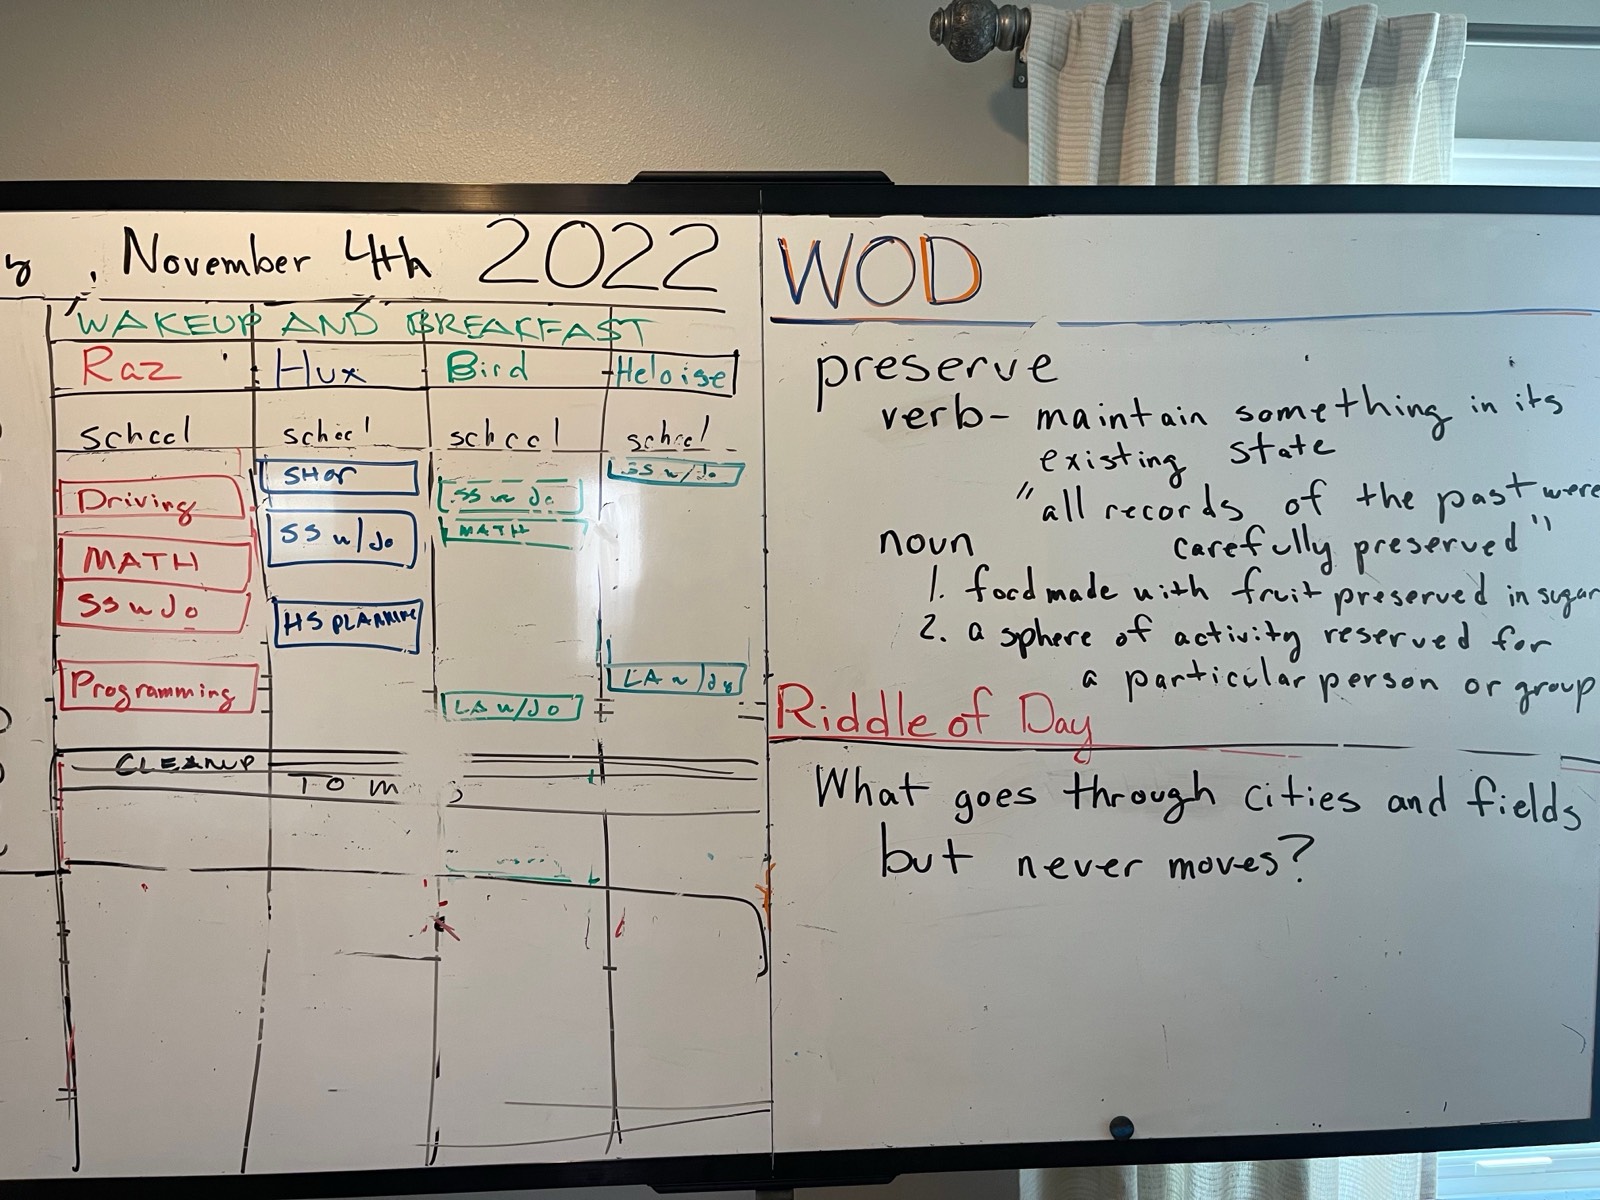 , November 4th 2022
WAKEUP AND BREAKFAST
Raz Hux Bird Heloise
school school school school
Driving
MATH
SS w Jo
Programming
SHOP
SS w/Jo
HS PLANNING
SS w Jo
MATH
LA w/Jo
SS w/Jo
LA w/Jo
CLEANUP
TOM
WOD
preserve
verb- maintain something in its
existing state
"all records of the past were
carefully preserved"
noun
1. food made with fruit preserved in sugar
2. a sphere of activity reserved for
a particular person or group
Riddle of Day
What goes through cities and fields
but never moves?